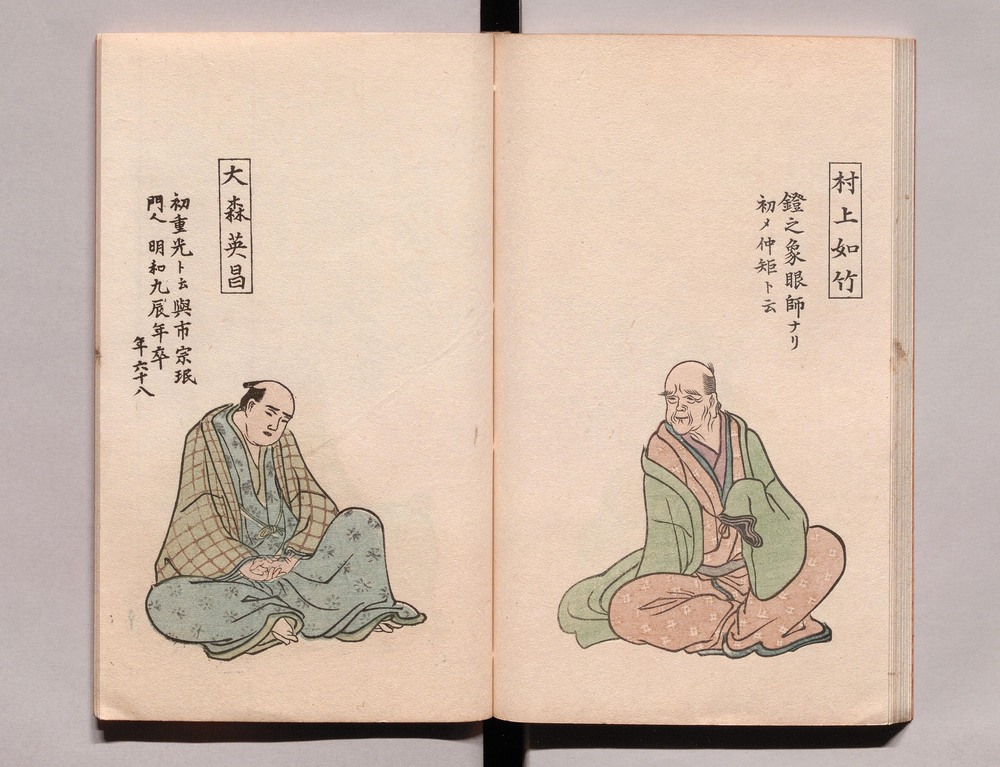 村上如竹
鐙之象眼師ナリ
初メ仲矩ト云
大森英昌
初重光ト云與市宗珉
門人 明和九辰年卒
年六十八